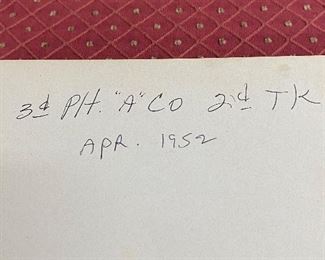 3d PH. "A" CO 2d TK
APR. 1952